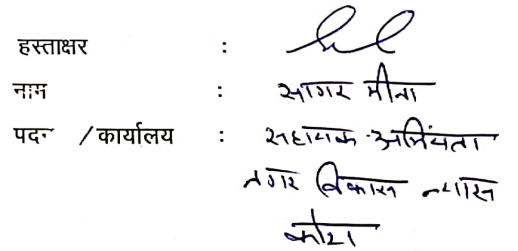 हस्ताक्षर :
नाम : सागर मीना
पदन /कार्यालय : सहायक अभियंता
नगर विकास न्यास
कोटा